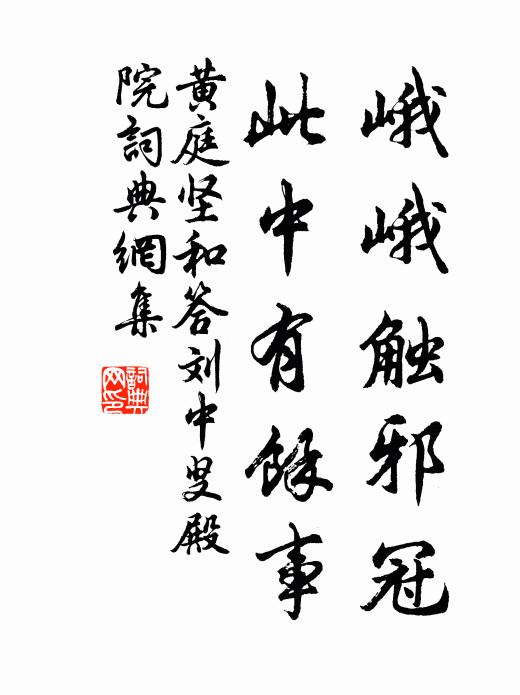 峨峨触邪冠
此中有餘事
黄庭坚和答刘中叟殿
院詞典網集
詞典
网印